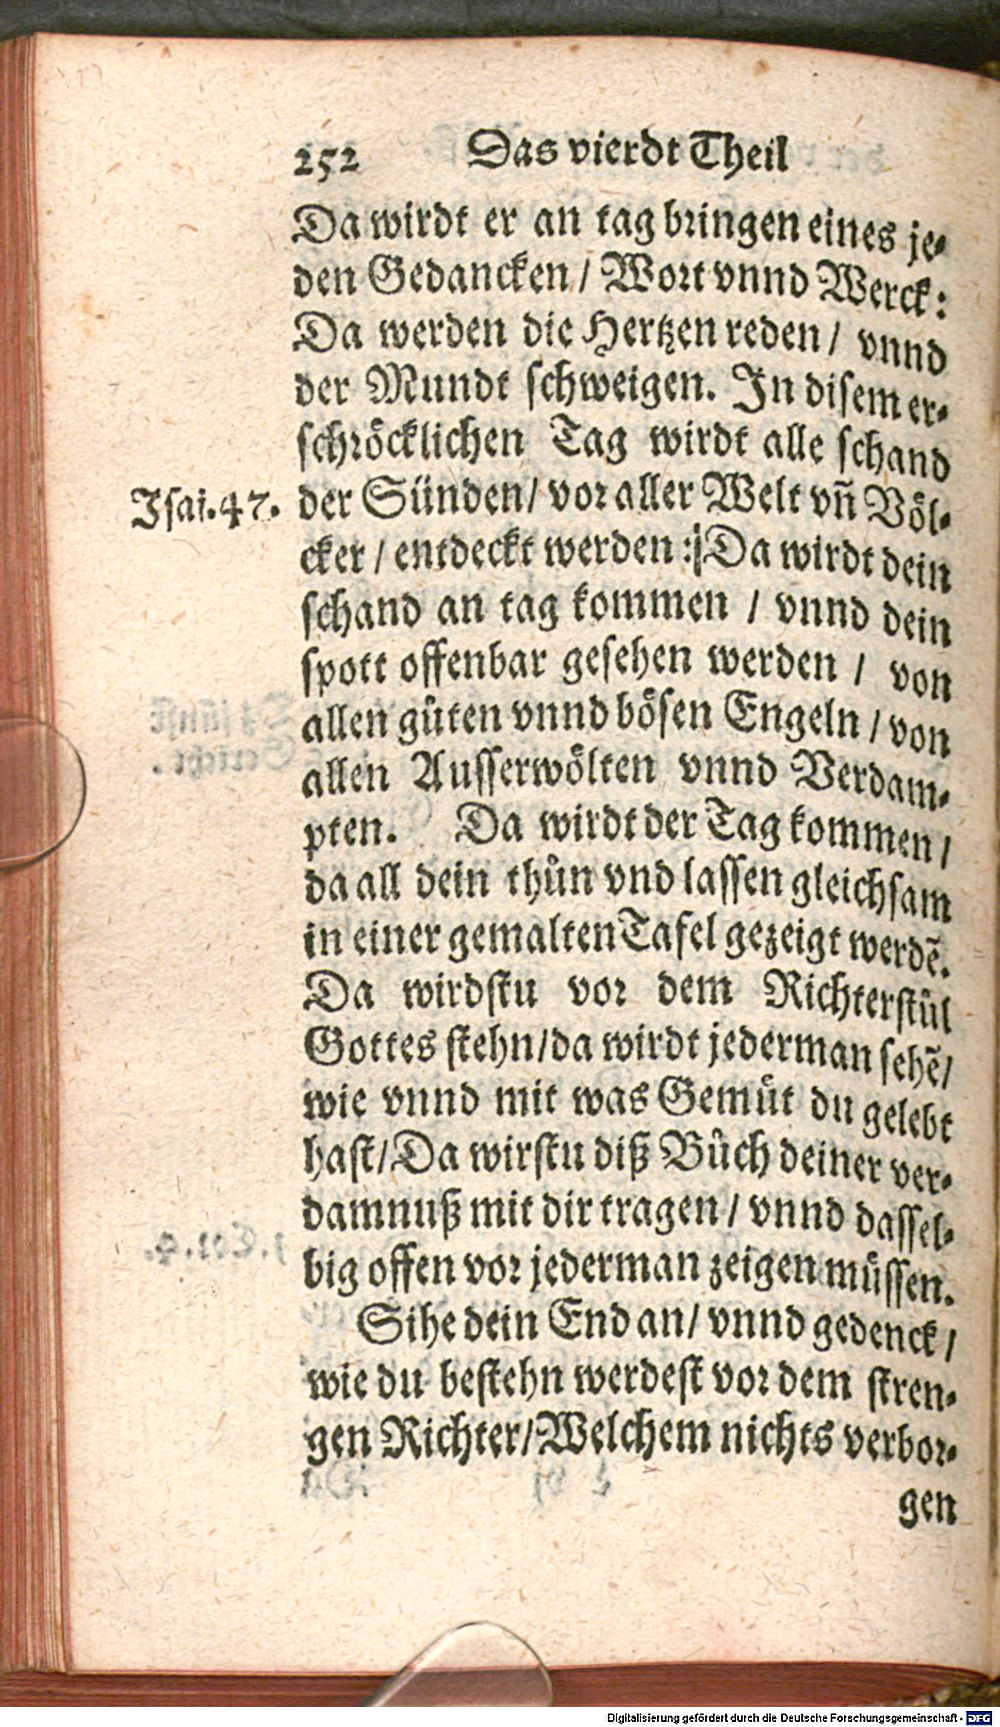 252 Das vierdt Theil
Da wirdt er an tag bringen eines je-
den Gedancken / Wort vnnd Werck:
Da werden die Hertzen reden / vnnd
der Mundt schweigen. In disem er-
schröcklichen Tag wirdt alle schand
Isai. 47. der Sünden / vor aller Welt vñ Völ-
cker / entdeckt werden: Da wirdt dein
schand an tag kommen / vnnd dein
spott offenbar gesehen werden / von
allen gůten vnnd bösen Engeln / von
allen Ausserwölten vnnd Verdam-
pten. Da wirdt der Tag kommen /
da all dein thůn vnd lassen gleichsam
in einer gemalten Tafel gezeigt werdẽ.
Da wirdstu vor dem Richterstůl
Gottes stehn / da wirdt jederman sehẽ /
wie vnnd mit was Gemüt du gelebt
hast / Da wirstu diß Bůch deiner ver-
damnuß mit dir tragen / vnnd dassel-
big offen vor jederman zeigen müssen.
Sihe dein End an / vnnd gedenck /
wie du bestehn werdest vor dem stren-
gen Richter / Welchem nichts verbor-
gen
Digitalisierung gefördert durch die Deutsche Forschungsgemeinschaft - DFG